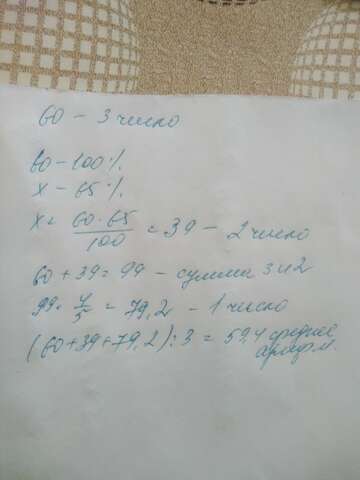 60 - 3 число
60 - 100%
x - 65%
x = 60·65/100 = 39 - 2 число
60 + 39 = 99 - сумма 3 и 2
99 · 4/5 = 79,2 - 1 число
(60+39+79,2):3 = 59,4 среднее арифм.